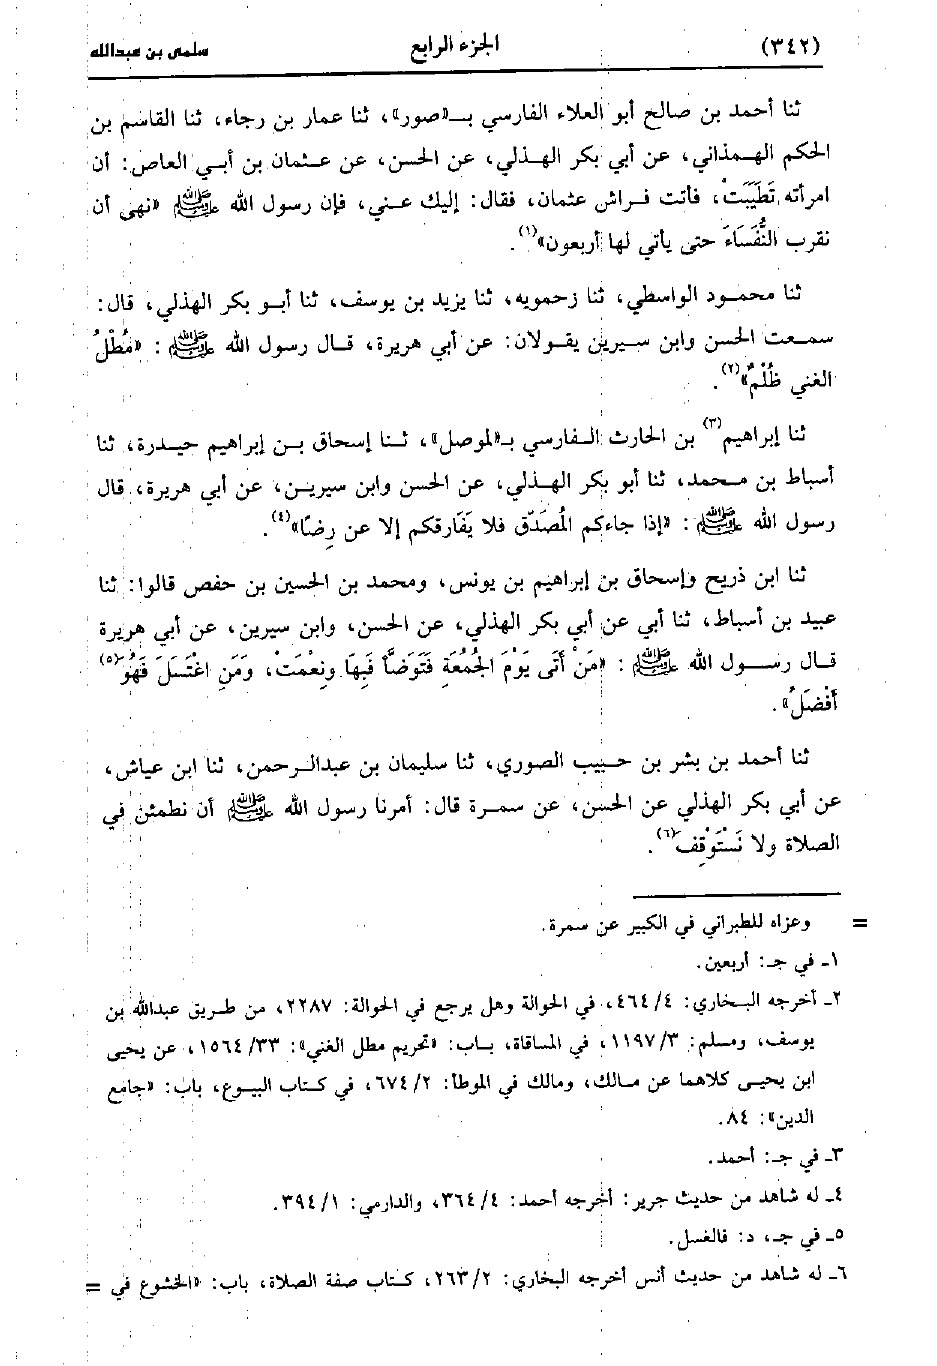 (٣٤٢) الجزء الرابع سلمى بن عبدالله
ثنا أحمد بن صالح أبو العلاء الفارسي بـ«صور»، ثنا عمار بن رجاء، ثنا القاسم بن
الحكم الهمذاني، عن أبي بكر الهذلي، عن الحسن، عن عثمان بن أبي العاص: أن
امرأته تَطَيَّبَتْ، فأتت فراش عثمان، فقال: إليك عني، فإن رسول الله ﷺ «نهى أن
نقرب النُّفَسَاءَ حتى يأتي لها أربعون»(١).
ثنا محمود الواسطي، ثنا زحمويه، ثنا يزيد بن يوسف، ثنا أبو بكر الهذلي، قال:
سمعت الحسن وابن سيرين يقولان: عن أبي هريرة، قال رسول الله ﷺ: «مُطْلُ
الغني ظُلْمٌ»(٢).
ثنا إبراهيم(٣) بن الحارث الفارسي بـ«الموصل»، ثنا إسحاق بن إبراهيم حيدرة، ثنا
أسباط بن محمد، ثنا أبو بكر الهذلي، عن الحسن وابن سيرين، عن أبي هريرة، قال
رسول الله ﷺ: «إذا جاءكم الُمصَدّق فلا يَفَارقكم إلا عن رِضًا»(٤).
ثنا ابن ذريح وإسحاق بن إبراهيم بن يونس، ومحمد بن الحسين بن حفص قالوا: ثنا
عبيد بن أسباط، ثنا أبي عن أبي بكر الهذلي، عن الحسن، وابن سيرين، عن أبي هريرة
قال رسول الله ﷺ: «مَنْ أَتَى يَوْمَ الجُمُعَةِ فَتَوَضَّأَ فَبِهَا ونِعْمَتْ، وَمَنِ اغْتَسَلَ فَهُوَ(٥)
أَفْضَلُ».
ثنا أحمد بن بشر بن حبيب الصوري، ثنا سليمان بن عبدالرحمن، ثنا ابن عياش،
عن أبي بكر الهذلي عن الحسن، عن سمرة قال: أمرنا رسول الله ﷺ أن نطمئن في
الصلاة ولا نَسْتَوْفِز(٦).
= وعزاه للطبراني في الكبير عن سمرة.
١ـ في جـ: أربعين.
٢ـ أخرجه البخاري: ٤/ ٤٦٤، في الحوالة وهل يرجع في الحوالة: ٢٢٨٧، من طريق عبدالله بن
يوسف، ومسلم: ٣/ ١١٩٧، في المساقاة، باب: «تحريم مطل الغني»: ٣٣/ ١٥٦٤، عن يحيى
ابن يحيى كلاهما عن مالك، ومالك في الموطأ: ٢/ ٦٧٤، في كتاب البيوع، باب: «جامع
الدين»: ٨٤.
٣ـ في جـ: أحمد.
٤ـ له شاهد من حديث جرير: أخرجه أحمد: ٤/ ٣٦٤، والدارمي: ١/ ٣٩٤.
٥ـ في جـ، د: فالغسل.
٦ـ له شاهد من حديث أنس أخرجه البخاري: ٢/ ٢٦٣، كتاب صفة الصلاة، باب: «الخشوع في =